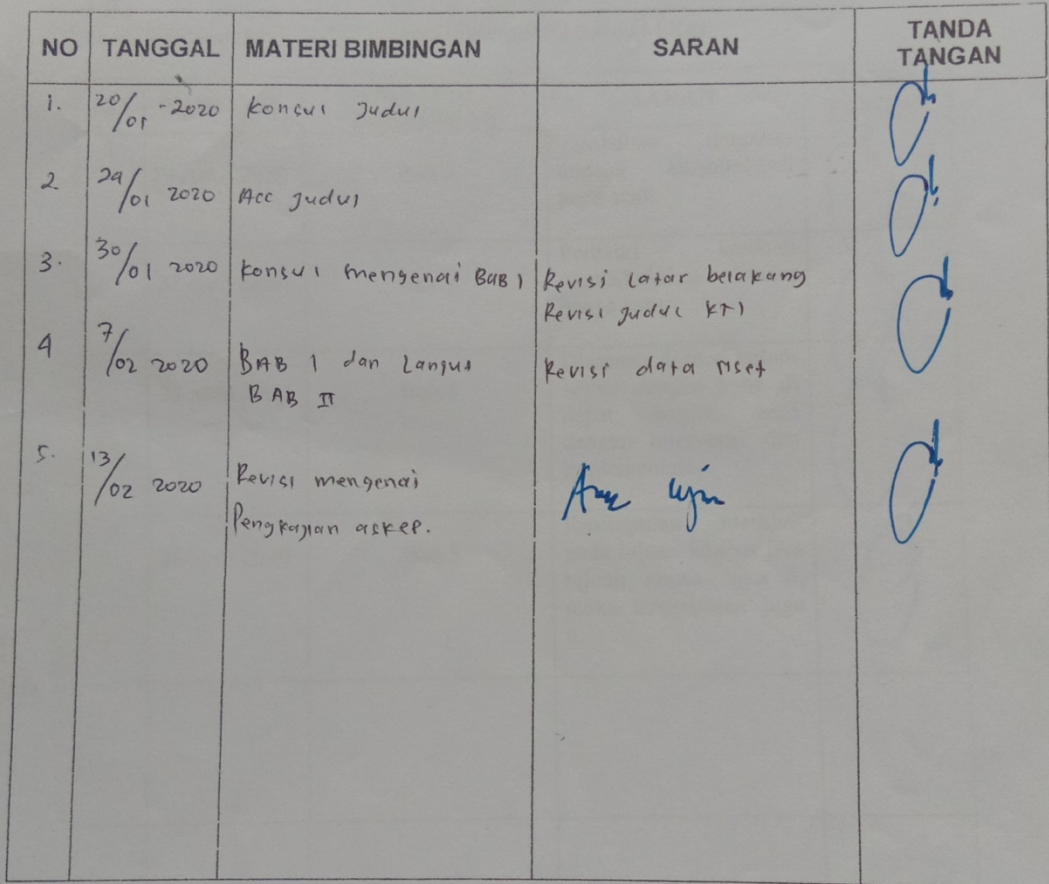 NO TANGGAL MATERI BIMBINGAN SARAN TANDA TANGAN
1. 20/01 -2020 Konsul Judul
2 29/01 2020 Acc Judul
3. 30/01 2020 Konsul mengenai BAB 1 Revisi latar belakang
Revisi Judul KTI
4 7/02 2020 BAB 1 dan Lanjut Revisi data riset
BAB II
5. 13/02 2020 Revisi mengenai
Pengkajian askep.